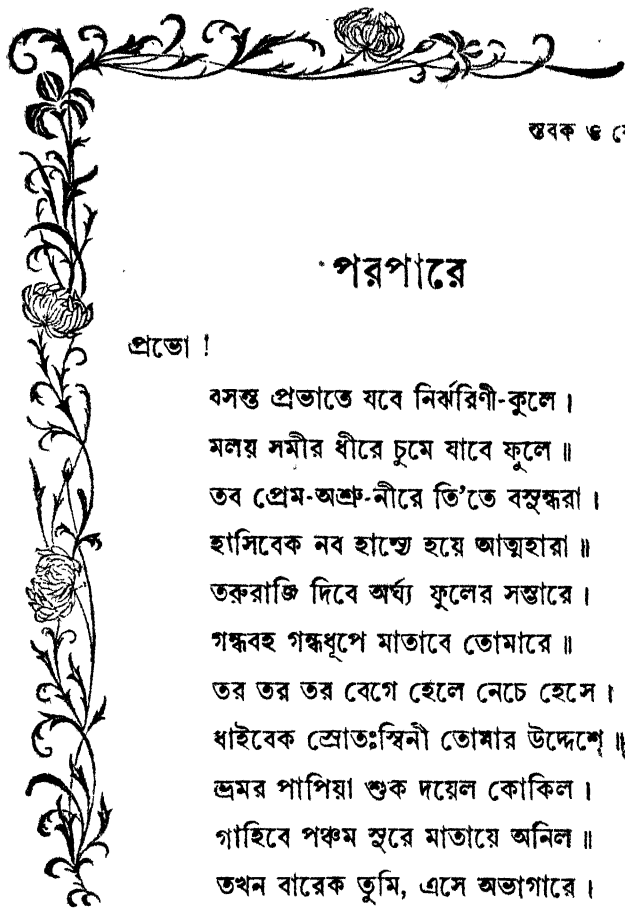 স্তবক ও
পরপারে
প্রভো !
বসন্ত প্রভাতে যবে নির্ঝরিণী-কুলে ।
মলয় সমীর ধীরে চুমে যাবে ফুলে ॥
তব প্রেম-অশ্রু-নীরে তি'তে বসুন্ধরা ।
হাসিবেক নব হাস্যে হয়ে আত্মহারা ॥
তরুরাজি দিবে অর্ঘ্য ফুলের সম্ভারে ।
গন্ধবহ গন্ধধূপে মাতাবে তোমারে ॥
তর তর তর বেগে হেলে নেচে হেসে ।
ধাইবেক স্রোতঃস্বিনী তোমার উদ্দেশে ॥
ভ্রমর পাপিয়া শুক দয়েল কোকিল ।
গাহিবে পঞ্চম সুরে মাতায়ে অনিল ॥
তখন বারেক তুমি, এসে অভাগারে ।